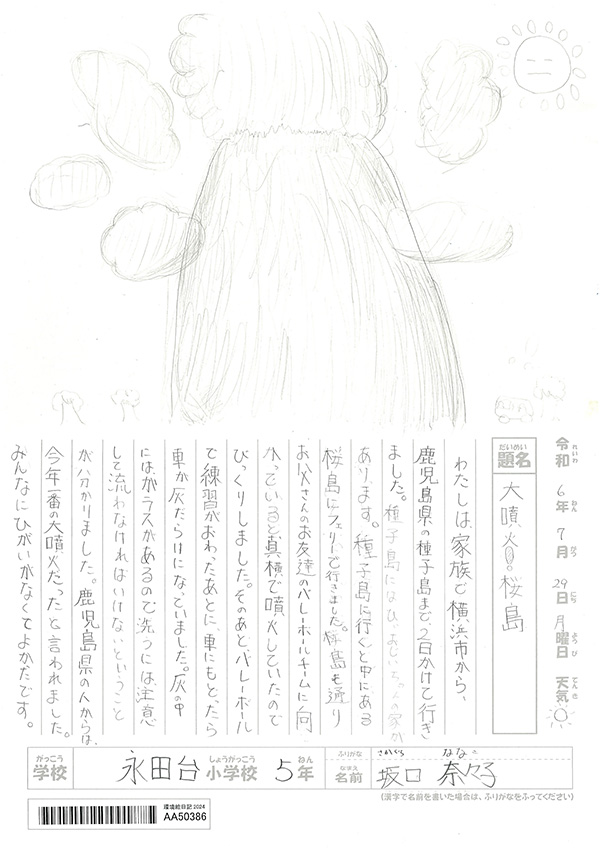 令和6年7月29日月曜日 天気
れいわ ねん がつ にち ようび てんき
だいめい
題名
大噴火!!桜島
わたしは、家族で横浜市から、
鹿児島県の種子島まで、2日かけて行き
ました。種子島にはひいおじいちゃんの家が
あります。種子島に行くと中にある
桜島にフェリーで行きました。桜島を通り
お父さんのお友達のバレーボールチームに向
かっていると真横で噴火していたので
びっくりしました。そのあと、バレーボール
で練習がおわったあとに、車にもどったら
車が灰だらけになっていました。灰の中
にはガラスがあるので洗うには、注意
して流わなければいけないということ
が分かりました。鹿児島県の人からは、
今年一番の大噴火だったと言われました。
みんなにひがいがなくてよかたです。
がっこう しょうがっこう ねん
学校 永田台小学校 5年
ふりがな さかぐち ななこ
なまえ
名前 坂口 奈々子
(漢字で名前を書いた場合は、ふりがなをふってください)
環境絵日記2024
AA50386